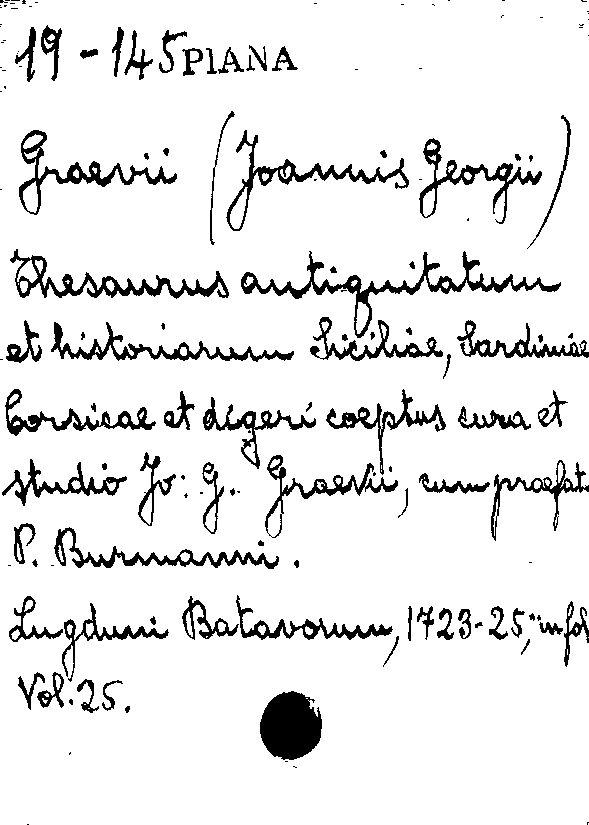 19-145 PIANA
Graevii (Joannis Georgii)
Thesaurus antiquitatum
et historiarum Siciliae, Sardiniae
Corsicae et digeri coeptus cura et
studio Jo: G. Graevii, cum praefat.
P. Burmanni.
Lugduni Batavorum, 1723-25, in fol
Vol. 25.